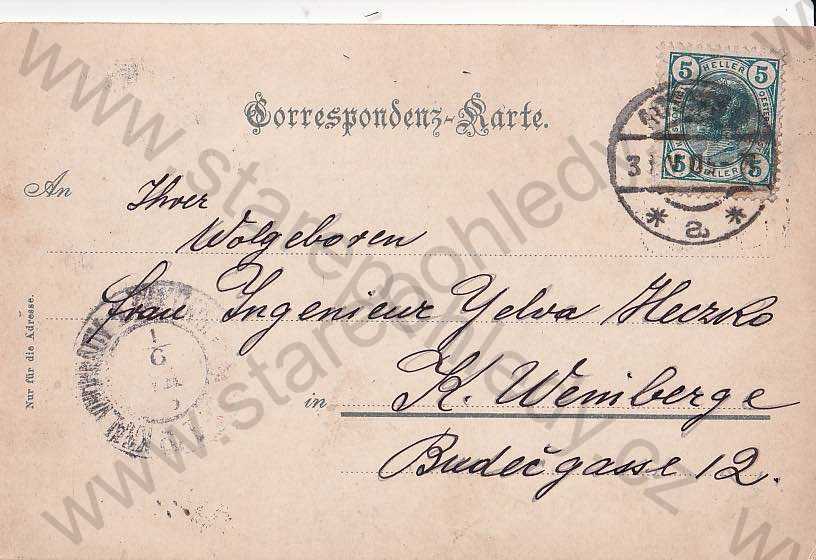 Correspondenz-Karte.
5 HELLER 5
5 HELLER 5
3 V 0
* a *
An
Ihrer
Wolgeboren
Frau Ingenieur Yelva Heczko
in K. Weinberge
Budečgasse 12.
Nur für die Adresse.
www.starepohledy.cz
www.starepohledy.cz